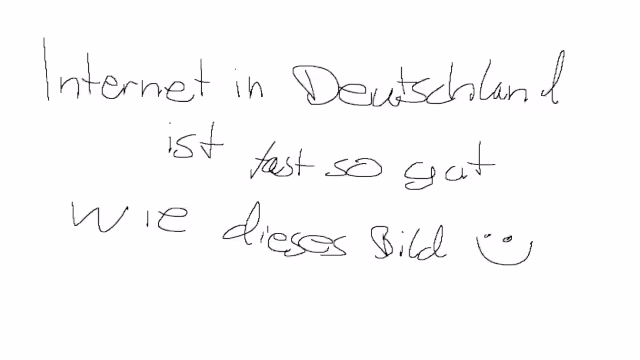 Internet in Deutschland
ist fast so gut
wie dieses Bild